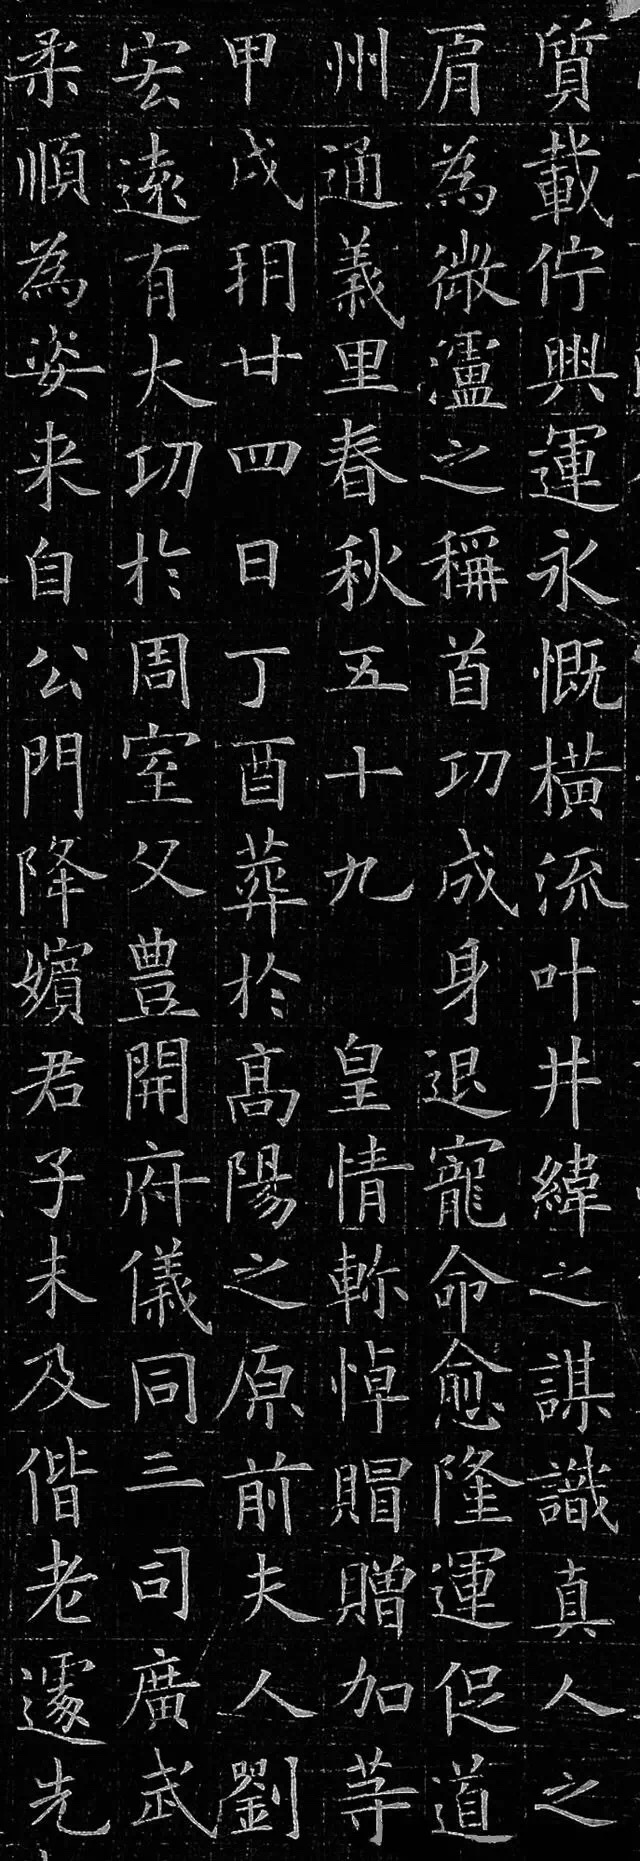 質載佇興運永慨橫流叶井緯之謀識真人之
肩為微瀘之稱首功成身退寵命愈隆運促道
州通義里春秋五十九　皇情軫悼賵贈加等
甲戌朔廿四日丁酉葬於高陽之原前夫人劉
宏遠有大功於周室父豊開府儀同三司廣武
柔順為姿来自公門降嬪君子未及偕老遽先